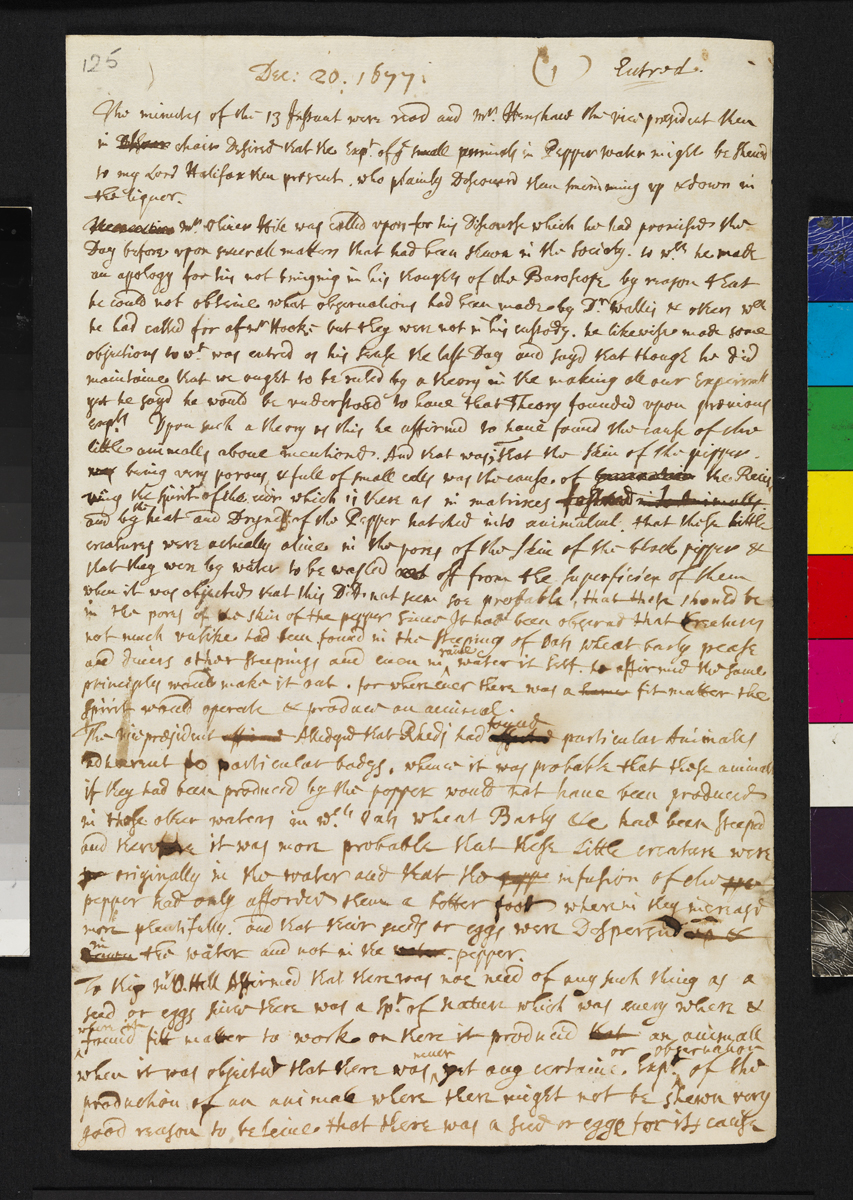 125
Dec: 20. 1677. (1) Entred.
The minutes of the 13 Instant were read and Mr. Henshaw the vice president then
in chair Desired that the Expt. of ye small animals in Pepper water might be shewd
to my Lord Halifax then present. who plainly Discoverd them swimming up & down in
the liquor.
Mr. Oliver Hill was called upon for his Discourse which he had promised the
Day before upon severall matters that had been shewn in the Society. to wch. he made
an apology for his not bringing in his thoughts of the Baroscope by reason that
he could not obteine what observations had been made by Dr. Wallis & others wch
he had called for of mr Hooke but they were not in his custody. he likewise made some
objections to wt. was entred as his sense the last Day and sayd that though he did
maintaine that we ought to be ruled by a theory in the making all our Experimts
yet he sayd he would be understood to have that Theory founded upon previous
Expts. Upon such a theory as this he affirmed to have found the cause of the
little animalls above mentioned. And that was, That the skin of the pepper.
being very porous & full of small cells was the cause of the Recei
ving the spirit of the which is there as in matrices
and by the heat and Dryness of the Pepper hatched into animalcul. that these little
creatures were actually alive in the pores of the skin of the black pepper &
that they were by water to be washed off from the superficies of them
when it was objected that this Did not seem soe probable, that these should be
in the pores of the skin of the pepper since It had been observed that Creatures
not much unlike had been found in the steeping of Oats wheat barly pease
and divers other steepings and even in raine water it self. he affirmed the same
principles would make it out. for wherever there was a fit matter the
spirit would operate & produce an animal.
The vice president Alledged that Rhedj had found particular Animales
adherent to particular bodys, whence it was probable that these animals
if they had been produced by the pepper would not have been produced
in those other waters in wch Oats wheat Barly &c had been steeped
and therefore it was more probable that these little creature were
originally in the water and that the infusion of the
pepper had only afforded them a better food wherein they increasd
more plentifully. and that their seeds or eggs were Dispersed
in the water and not in the pepper.
To this mr O. Hill Affirmed that there was noe need of any such thing as a
seed or eggs since there was a spt. of nature which was every where &
when it found fitt matter to work on there it produced an animall
when it was objected that there was never yet any certaine Expt. or observation of the
production of an animal where there might not be shewn very
good reason to beleive that there was a seed or egge for its cause